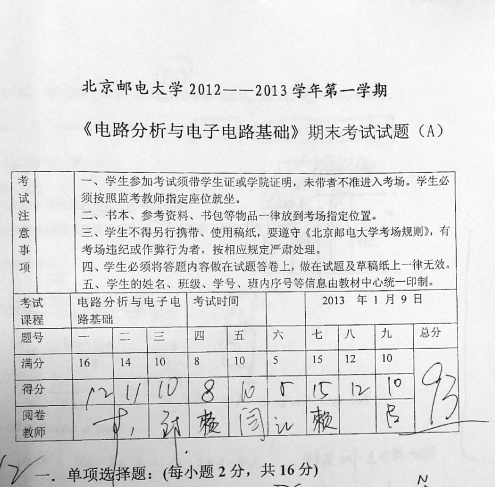 北京邮电大学 2012——2013 学年第一学期
《电路分析与电子电路基础》期末考试试题（A）
考试注意事项
一、学生参加考试须带学生证或学院证明，未带者不准进入考场。学生必
须按照监考教师指定座位就坐。
二、书本、参考资料、书包等物品一律放到考场指定位置。
三、学生不得另行携带、使用稿纸，要遵守《北京邮电大学考场规则》，有
考场违纪或作弊行为者，按相应规定严肃处理。
四、学生必须将答题内容做在试题答卷上，做在试题及草稿纸上一律无效。
五、学生的姓名、班级、学号、班内序号等信息由教材中心统一印制。
考试课程 电路分析与电子电路基础 考试时间 2013 年 1 月 9 日
题号 一 二 三 四 五 六 七 八 九 总分
满分 16 14 10 8 10 5 15 12 10
得分 12 11 10 8 10 5 15 12 10 93
阅卷教师 赖 闫 赖 吕
12
一．单项选择题：(每小题 2 分，共 16 分)